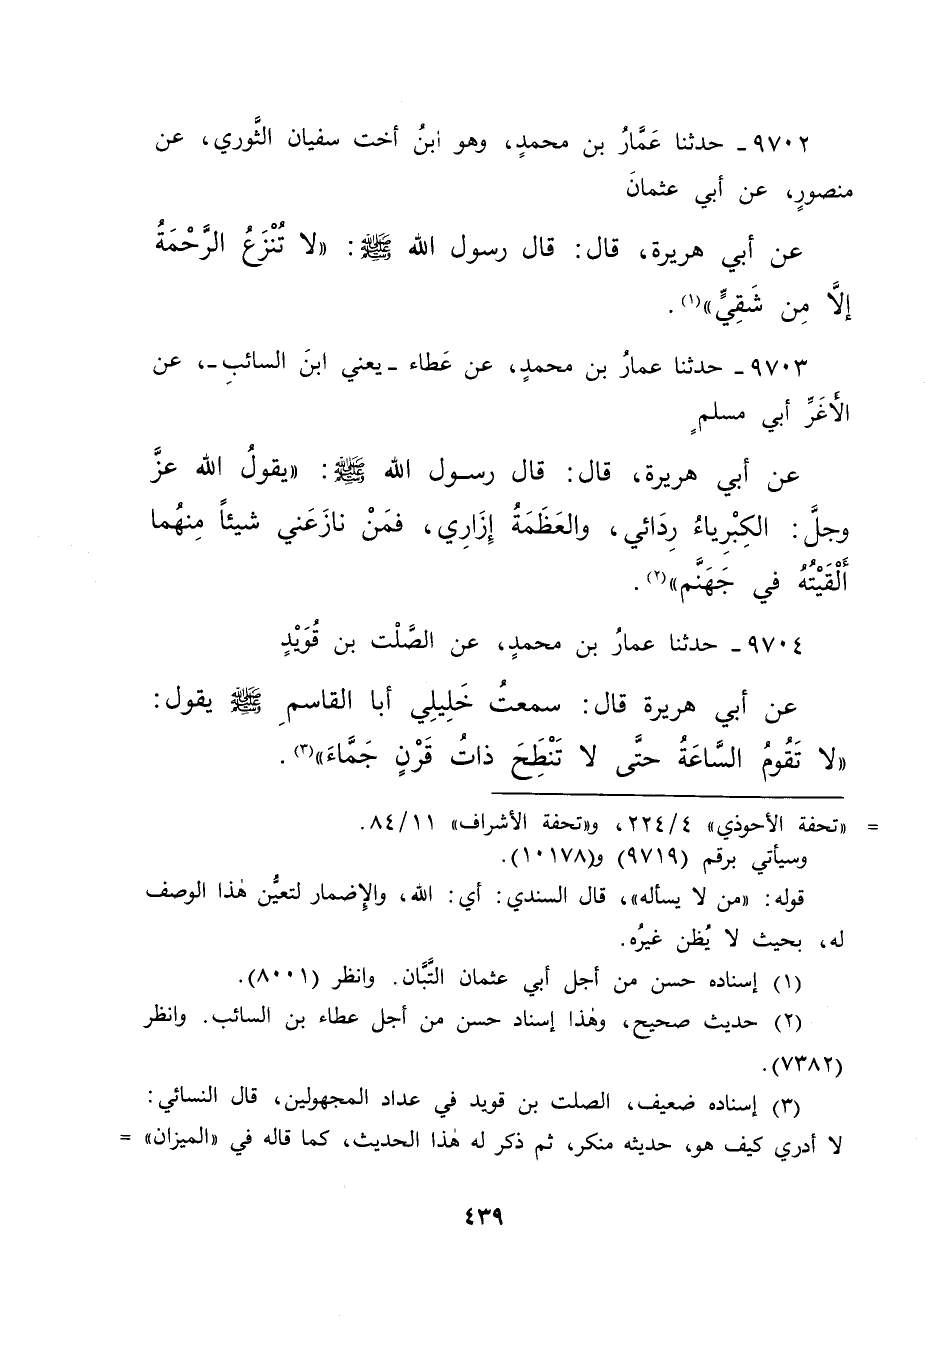 ٩٧٠٢ ـ حدثنا عَمَّارُ بن محمدٍ، وهو ابنُ أخت سفيان الثَّوري، عن
منصورٍ، عن أبي عثمانَ
عن أبي هريرة، قال: قال رسول الله ﷺ: «لا تُنْزَعُ الرَّحْمَةُ
إلَّا مِن شَقِيٍّ»(١).
٩٧٠٣ ـ حدثنا عمارُ بن محمدٍ، عن عَطاء ـ يعني ابنَ السائبِ ـ، عن
الأَغَرِّ أبي مسلمٍ
عن أبي هريرة، قال: قال رسول الله ﷺ: «يقولُ الله عزَّ
وجلَّ: الكِبْرِياءُ رِدَائي، والعَظَمَةُ إزَارِي، فمَنْ نازَعَني شيئاً مِنهُما
أَلْقَيْتُهُ في جَهَنَّم»(٢).
٩٧٠٤ ـ حدثنا عمارُ بن محمدٍ، عن الصَّلْت بن قُوَيْدٍ
عن أبي هريرة قال: سمعتُ خَلِيلِي أبا القاسمِ ﷺ يقول:
«لا تَقُومُ السَّاعَةُ حتَّى لا تَنْطِحَ ذاتُ قَرْنٍ جَمَّاءَ»(٣).
= «تحفة الأحوذي» ٢٢٤/٤، و«تحفة الأشراف» ٨٤/١١.
وسيأتي برقم (٩٧١٩) و(١٠١٧٨).
قوله: «من لا يسأله»، قال السندي: أي: الله، والإضمار لتعيُّن هٰذا الوصف
له، بحيث لا يُظن غيرُه.
(١) إسناده حسن من أجل أبي عثمان التَّبَّان. وانظر (٨٠٠١).
(٢) حديث صحيح، وهٰذا إسناد حسن من أجل عطاء بن السائب. وانظر
(٧٣٨٢).
(٣) إسناده ضعيف، الصلت بن قويد في عداد المجهولين، قال النسائي:
لا أدري كيف هو، حديثه منكر، ثم ذكر له هٰذا الحديث، كما قاله في «الميزان» =
٤٣٩